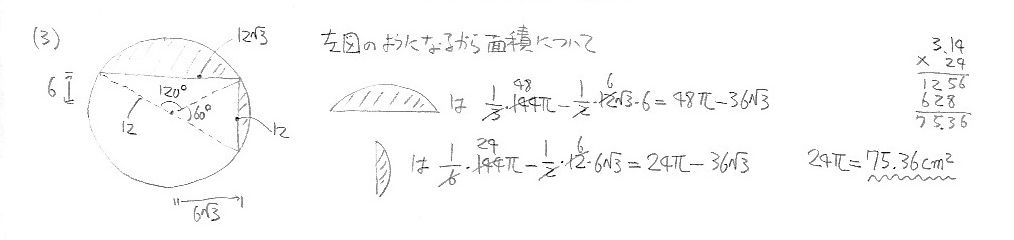 (3)
12√3
6
120°
60°
12
12
6√3
左図のようになるから面積について
は 1/3・144π－1/2・12√3・6＝48π－36√3
48
6
は 1/6・144π－1/2・12・6√3＝24π－36√3
24
6
24π＝75.36cm²
3.14
× 24
1256
628
75.36